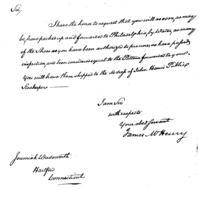 Sir,
I have the honor to request that you will as soon, as may
be, have packed up and forwarded to Philadelphia, by water, as many
of the Shoes as you have been authorized to procure, as have passed
inspection, and been considered equal to the Pattern furnished to you
You will have them shipped to the address of John Harris Public
Storekeeper
I am Sir
with respect
Your obed Servant
James McHenry
Jeremiah Wadsworth
Hartford
Connecticut